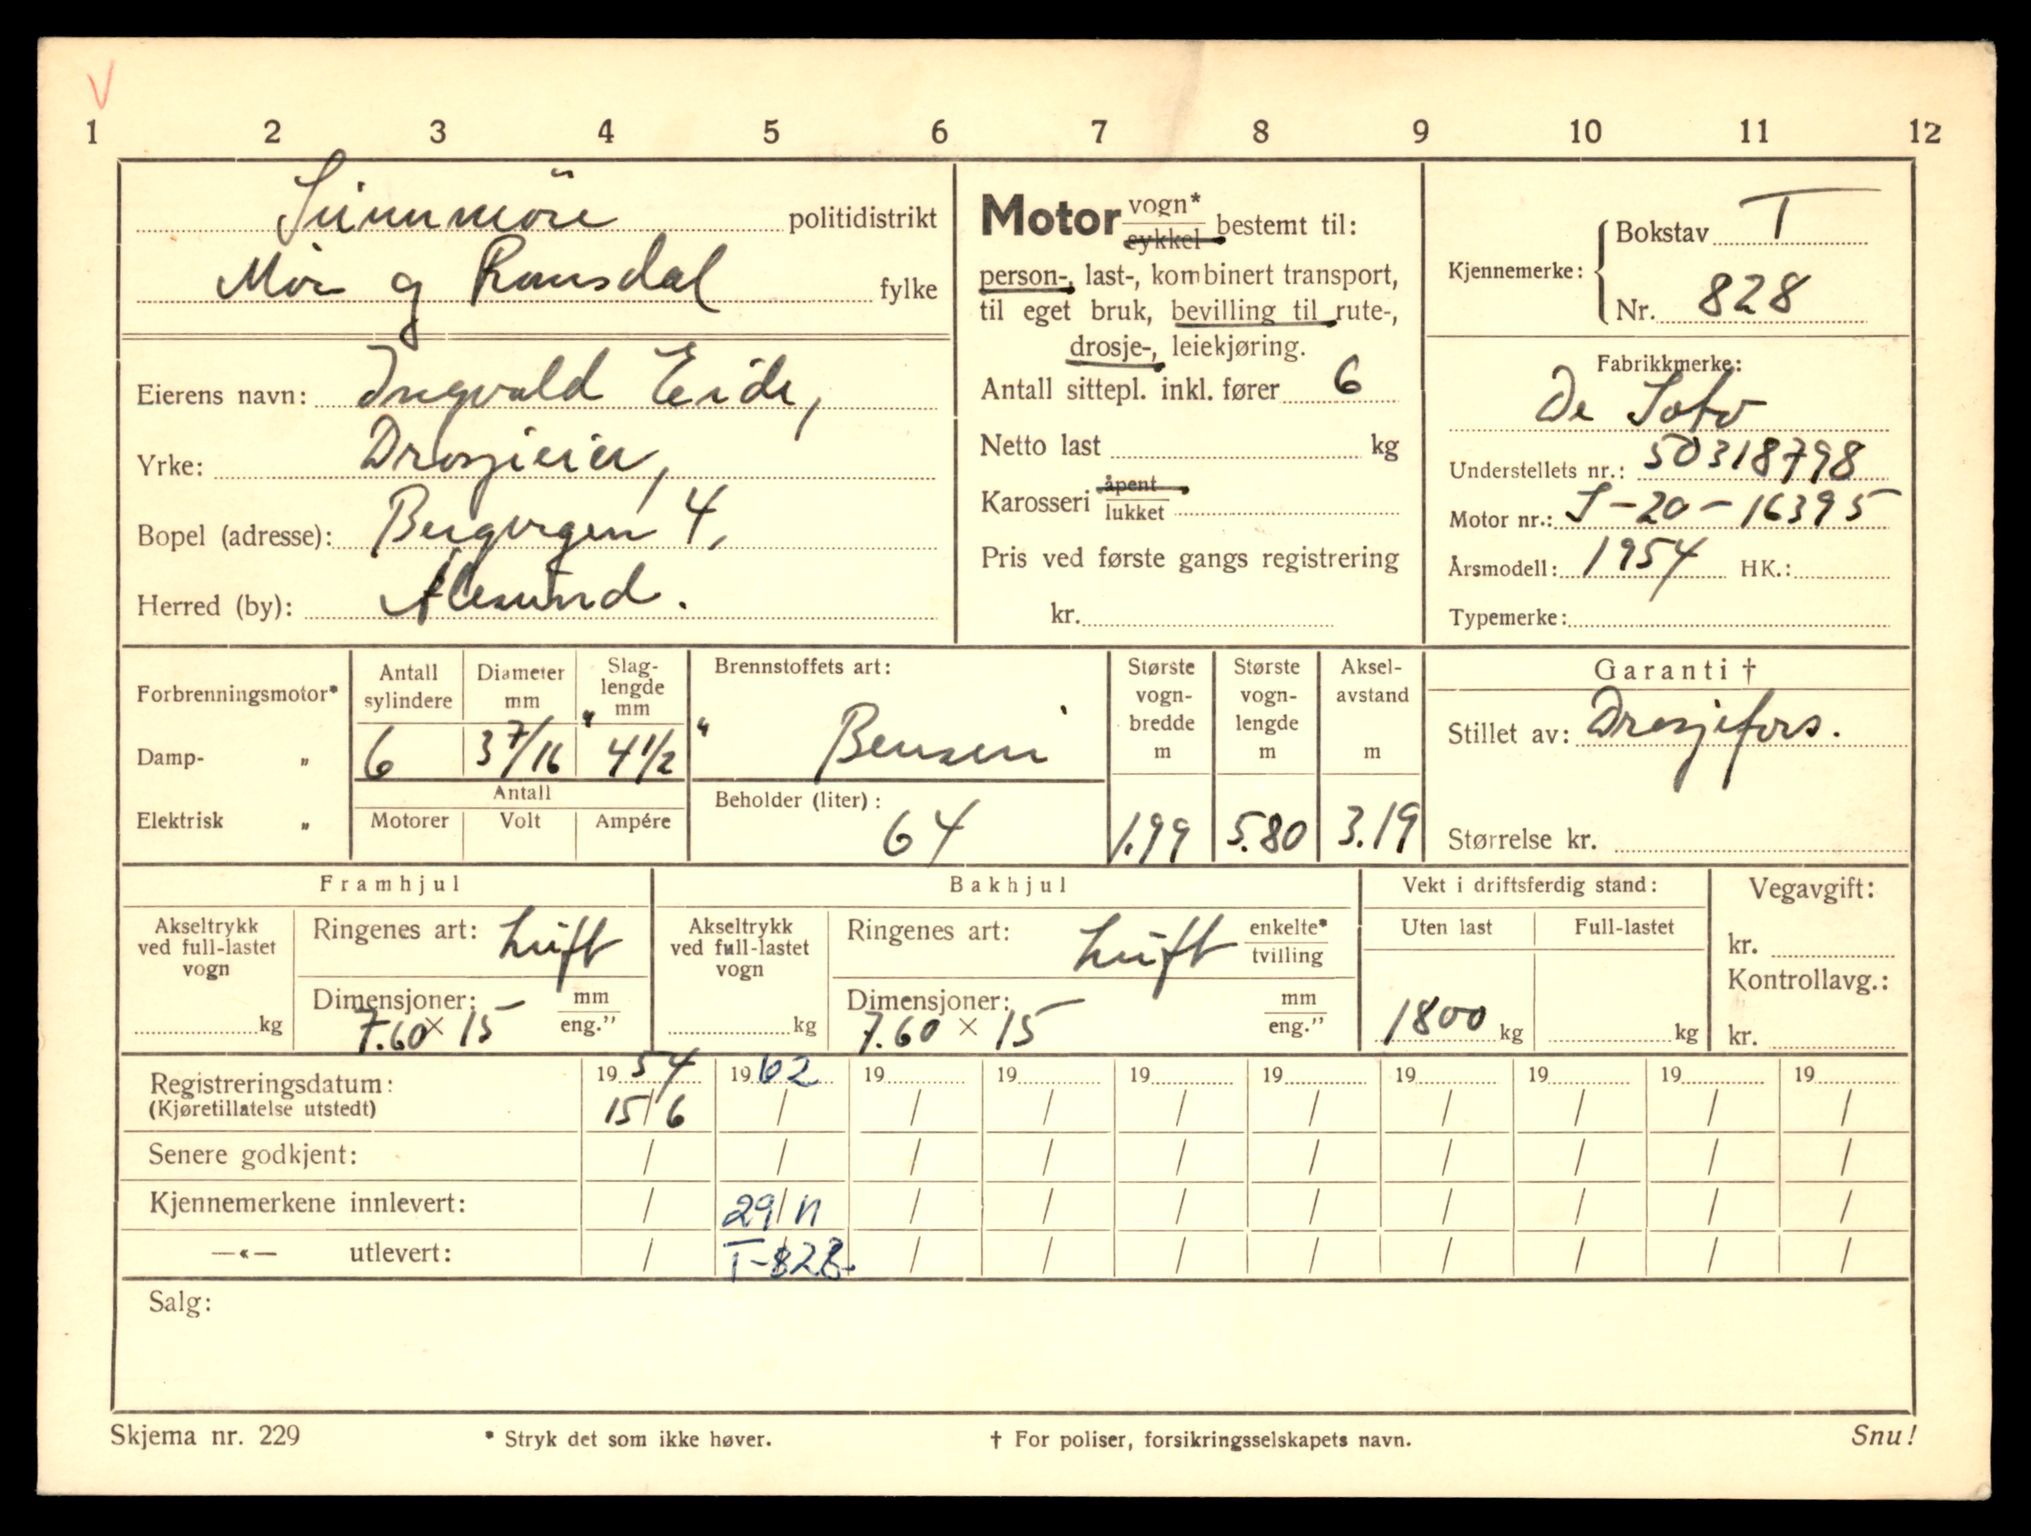 V
1 2 3 4 5 6 7 8 9 10 11 12
Sunnmöre politidistrikt
Möre og Romsdal fylke
Eierens navn: Ingvald Eide,
Yrke: Drosjeeier,
Bopel (adresse): Bergvegen 4,
Herred (by): Ålesund.
Motor vogn* / cykkel bestemt til:
person-, last-, kombinert transport,
til eget bruk, bevilling til rute-,
drosje-, leiekjøring.
Antall sittepl. inkl. fører 6
Netto last kg
Karosseri åpent / lukket
Pris ved første gangs registrering
kr.
Kjennemerke: Bokstav T
Nr. 828
Fabrikkmerke:
De Soto
Understellets nr.: 50318798
Motor nr.: S-20-16395
Årsmodell: 1954 HK.:
Typemerke:
Forbrenningsmotor*
Damp- „
Elektrisk „
Antall sylindere
6
Diameter mm
3 7/16 "
Slag-lengde mm
4 1/2 "
Antall
Motorer Volt Ampére
Brennstoffets art:
Bensin
Beholder (liter):
64
Største vogn-bredde m
1.99
Største vogn-lengde m
5.80
Aksel-avstand m
3.19
Garanti †
Stillet av: Drosjefors.
Størrelse kr.
Framhjul
Akseltrykk ved full-lastet vogn
kg
Ringenes art: Luft
Dimensjoner: mm / eng.”
7.60 × 15
Bakhjul
Akseltrykk ved full-lastet vogn
kg
Ringenes art: Luft enkelte* / tvilling
Dimensjoner: mm / eng.”
7.60 × 15
Vekt i driftsferdig stand:
Uten last Full-lastet
1800 kg kg
Vegavgift:
kr.
Kontrollavg.:
kr.
Registreringsdatum: 19 54 19 62 19 19 19 19 19 19 19 19
(Kjøretillatelse utstedt) 15/6 / / / / / / / / /
Senere godkjent: / / / / / / / / / /
Kjennemerkene innlevert: / 29/11 / / / / / / / /
—«— utlevert: / T-828. / / / / / / / /
Salg:
Skjema nr. 229 * Stryk det som ikke høver. † For poliser, forsikringsselskapets navn. Snu!